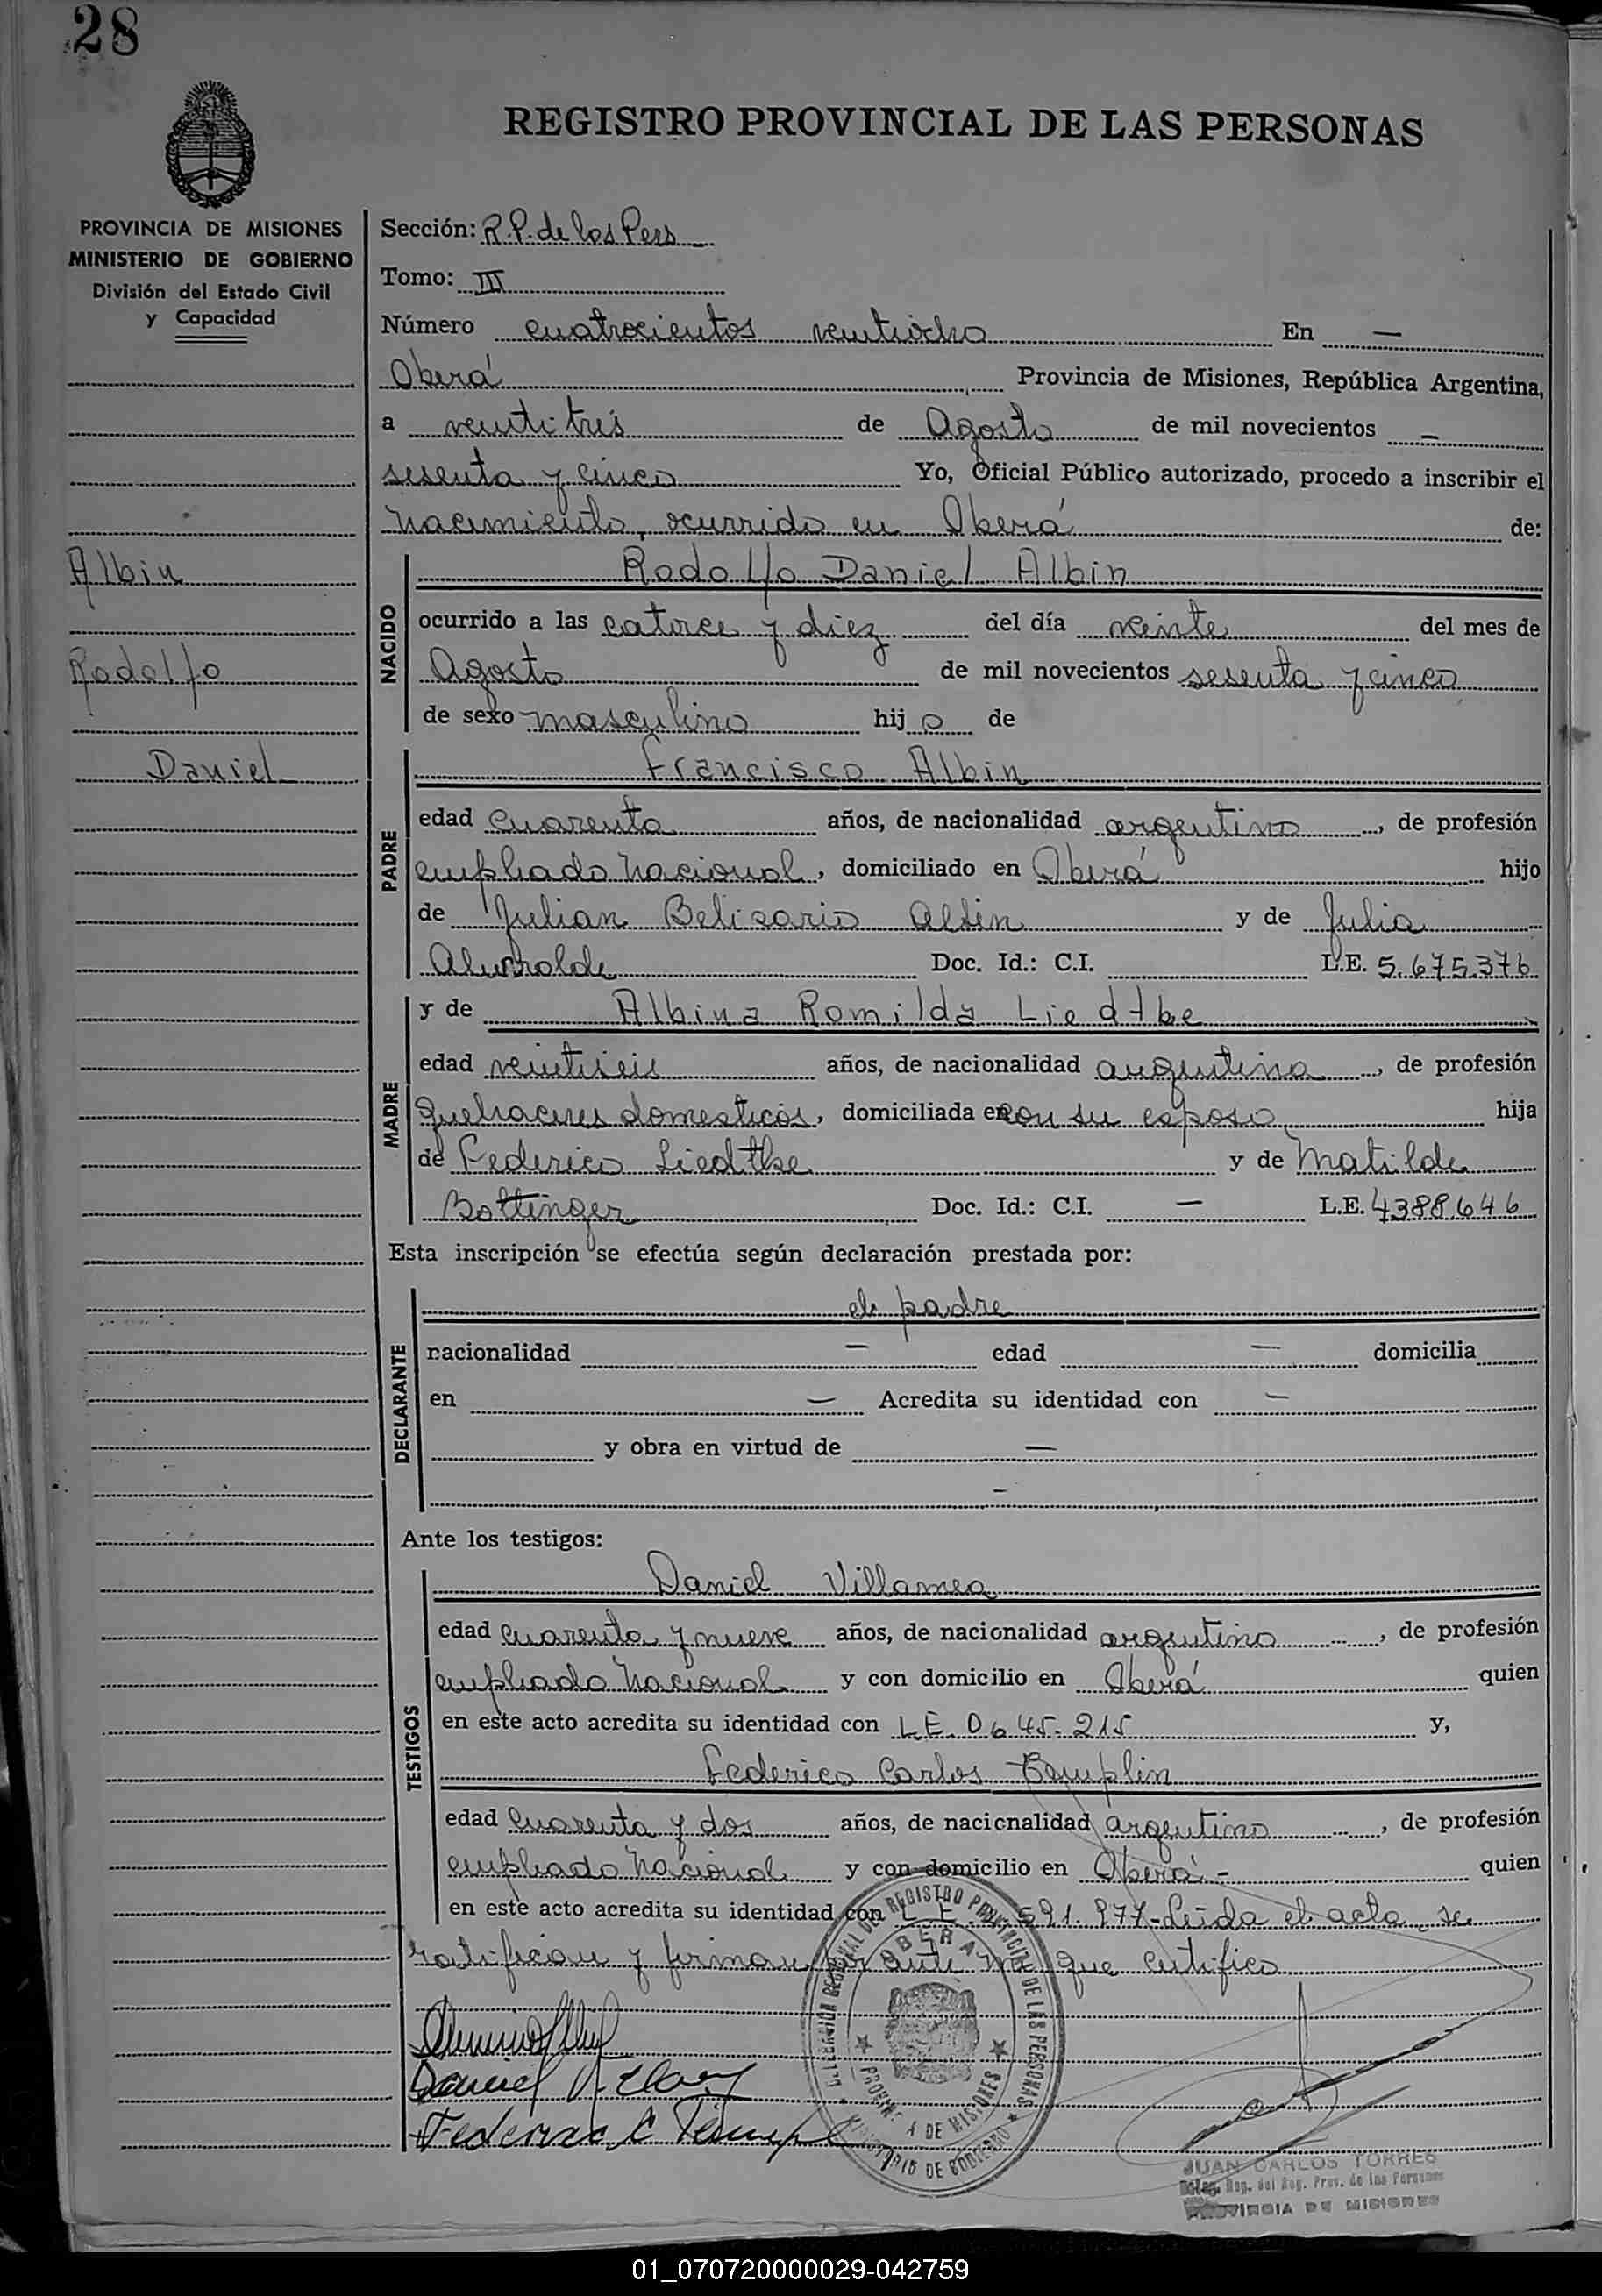 28
REGISTRO PROVINCIAL DE LAS PERSONAS
PROVINCIA DE MISIONES
MINISTERIO DE GOBIERNO
División del Estado Civil
y Capacidad
Albin
Rodolfo
Daniel
Sección: R.P. de las Pers
Tomo: III
Número cuatrocientos veintiocho En —
Oberá Provincia de Misiones, República Argentina,
a veintitrés de Agosto de mil novecientos —
sesenta y cinco Yo, Oficial Público autorizado, procedo a inscribir el
nacimiento, ocurrido en Oberá de:
NACIDO
Rodolfo Daniel Albin
ocurrido a las catorce y diez del día veinte del mes de
Agosto de mil novecientos sesenta y cinco
de sexo masculino hijo de
PADRE
Francisco Albin
edad cuarenta años, de nacionalidad argentino, de profesión
empleado nacional, domiciliado en Oberá hijo
de Julian Belisario Albin y de Julia
Doc. Id.: C.I. L.E. 5.675.376
MADRE
y de Albina Romilda Liedtke
edad veintiseis años, de nacionalidad argentina, de profesión
quehaceres domesticos, domiciliada en con su esposo hija
de Federico Liedtke y de Matilde
Bottinger Doc. Id.: C.I. — L.E. 4388.646
Esta inscripción se efectúa según declaración prestada por:
DECLARANTE
el padre
nacionalidad — edad — domicilia
en — Acredita su identidad con —
y obra en virtud de —
—
Ante los testigos:
TESTIGOS
Daniel
edad cuarenta y nueve años, de nacionalidad argentino, de profesión
empleado nacional y con domicilio en Oberá quien
en este acto acredita su identidad con L.E. 0645.215 y,
Federico Carlos
edad cuarenta y dos años, de nacionalidad argentino, de profesión
empleado nacional y con domicilio en Oberá - quien
en este acto acredita su identidad con L.E. 591.977- Leída el acta se
ratifican y firman por ante mi que certifico
DELEGACION REGIONAL DEL REGISTRO PROVINCIAL DE LAS PERSONAS
OBERA
PROVINCIA DE MISIONES
MINISTERIO DE GOBIERNO
Daniel
Federico C
JUAN CARLOS TORRES
Deleg. Reg. del Reg. Prov. de las Personas
PROVINCIA DE MISIONES
01_070720000029-042759